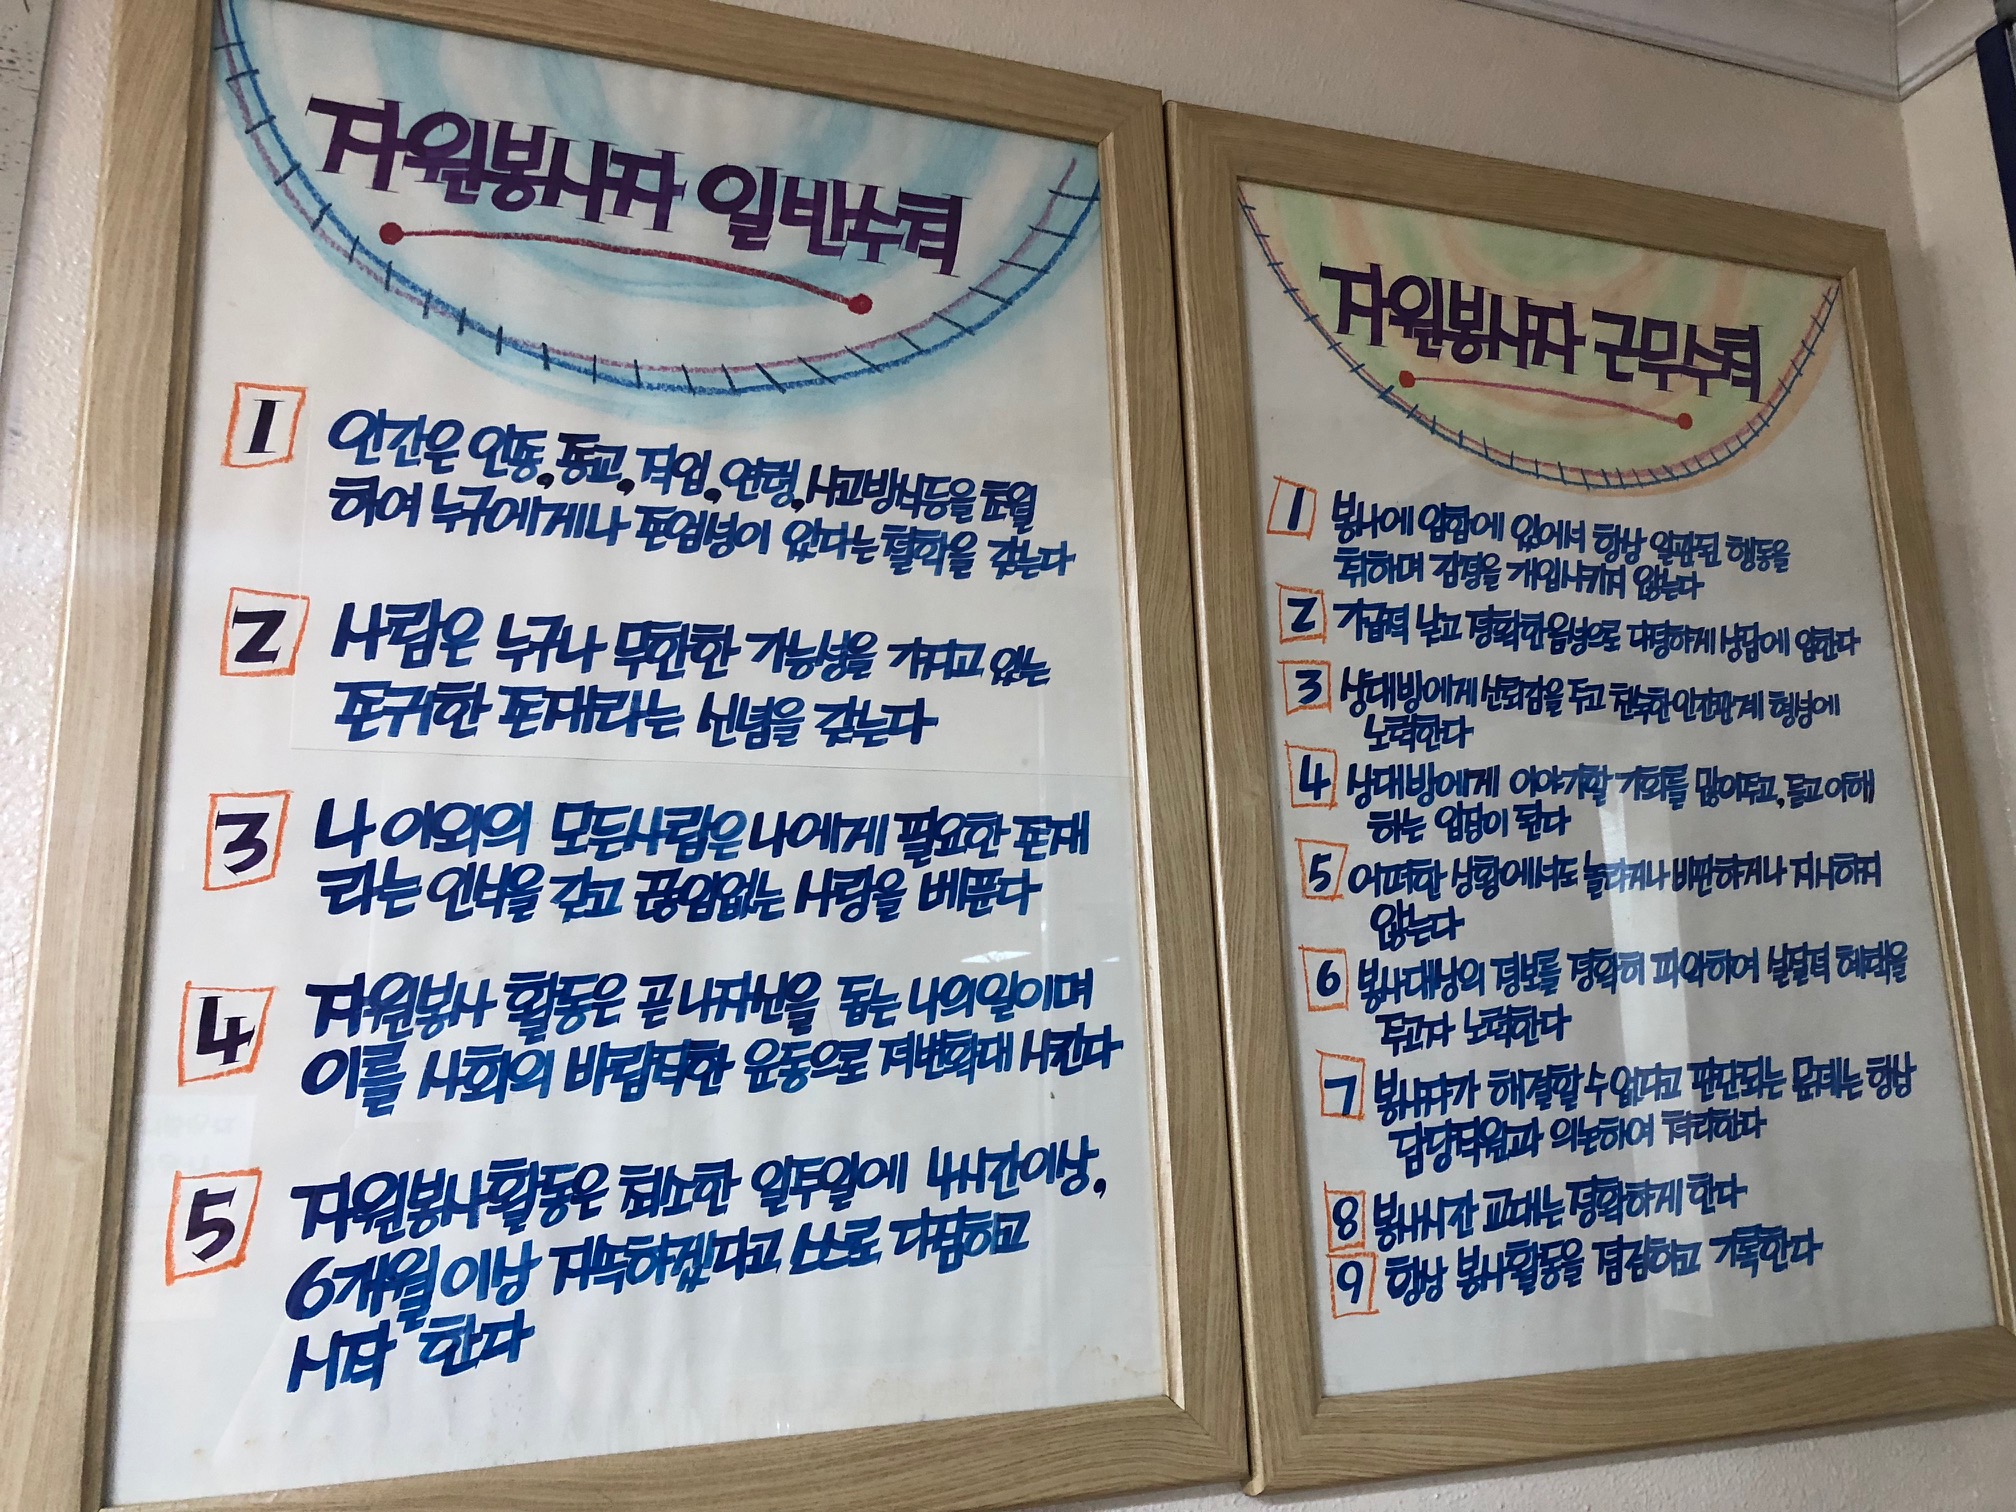 자원봉사자 일반수칙
1 인간은 인종, 종교, 직업, 연령, 사고방식등을 초월
하여 누구에게나 존엄성이 있다는 철학을 갖는다
2 사람은 누구나 무한한 가능성을 가지고 있는
존귀한 존재라는 신념을 갖는다
3 나 이외의 모든사람은 나에게 필요한 존재
라는 인식을 갖고 끊임없는 사랑을 베푼다
4 자원봉사 활동은 곧 나자신을 돕는 나의일이며
이를 사회의 바람직한 운동으로 저변확대 시킨다
5 자원봉사활동은 최소한 일주일에 4시간이상,
6개월이상 지속하겠다고 스스로 다짐하고
시작 한다
자원봉사자 근무수칙
1 봉사에 임함에 있어서 항상 일관된 행동을
취하며 감정을 개입시키지 않는다
2 가급적 낮고 정확한음성으로 다정하게 상담에 임한다
3 상대방에게 신뢰감을 주고 친숙한 인간관계 형성에
노력한다
4 상대방에게 이야기할 기회를 많이주고, 듣고 이해
하는 입장이 된다
5 어떠한 상황에서도 놀라거나 비판하거나 지시하지
않는다
6 봉사대상의 정보를 정확히 파악하여 실질적 혜택을
주고자 노력한다
7 봉사자가 해결할수 없다고 판단되는 문제는 항상
담당직원과 의논하여 처리한다
8 봉사시간 교대는 정확하게 한다
9 항상 봉사활동을 점검하고 기록한다